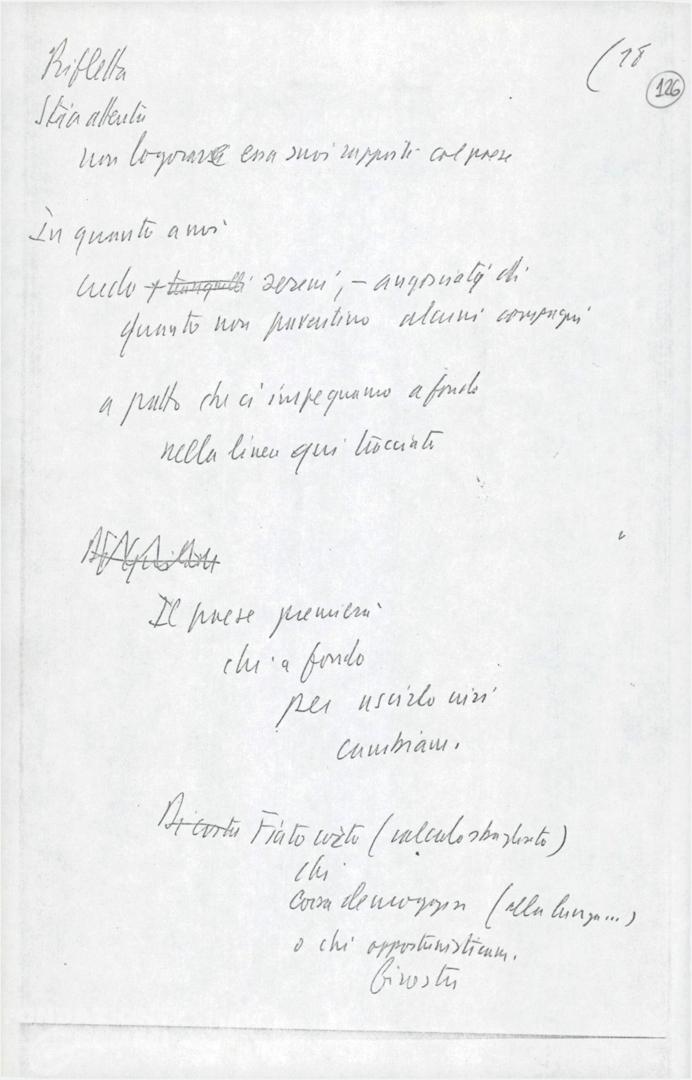 (18
126
Rifletta
Stia attenta
non logorare essa suoi rapporti col paese
In quanto a noi
credo + tranquilli sereni, – angosciati di
quanto non paventino alcuni compagni
a patto che ci impegniamo a fondo
nella linea qui tracciata
Il paese premierà
chi a fondo
per
cambiam.
Di costu Fiato corto (calcolo sbagliato)
chi
cerca demagogia (alla lunga...)
o chi opportunisticam.